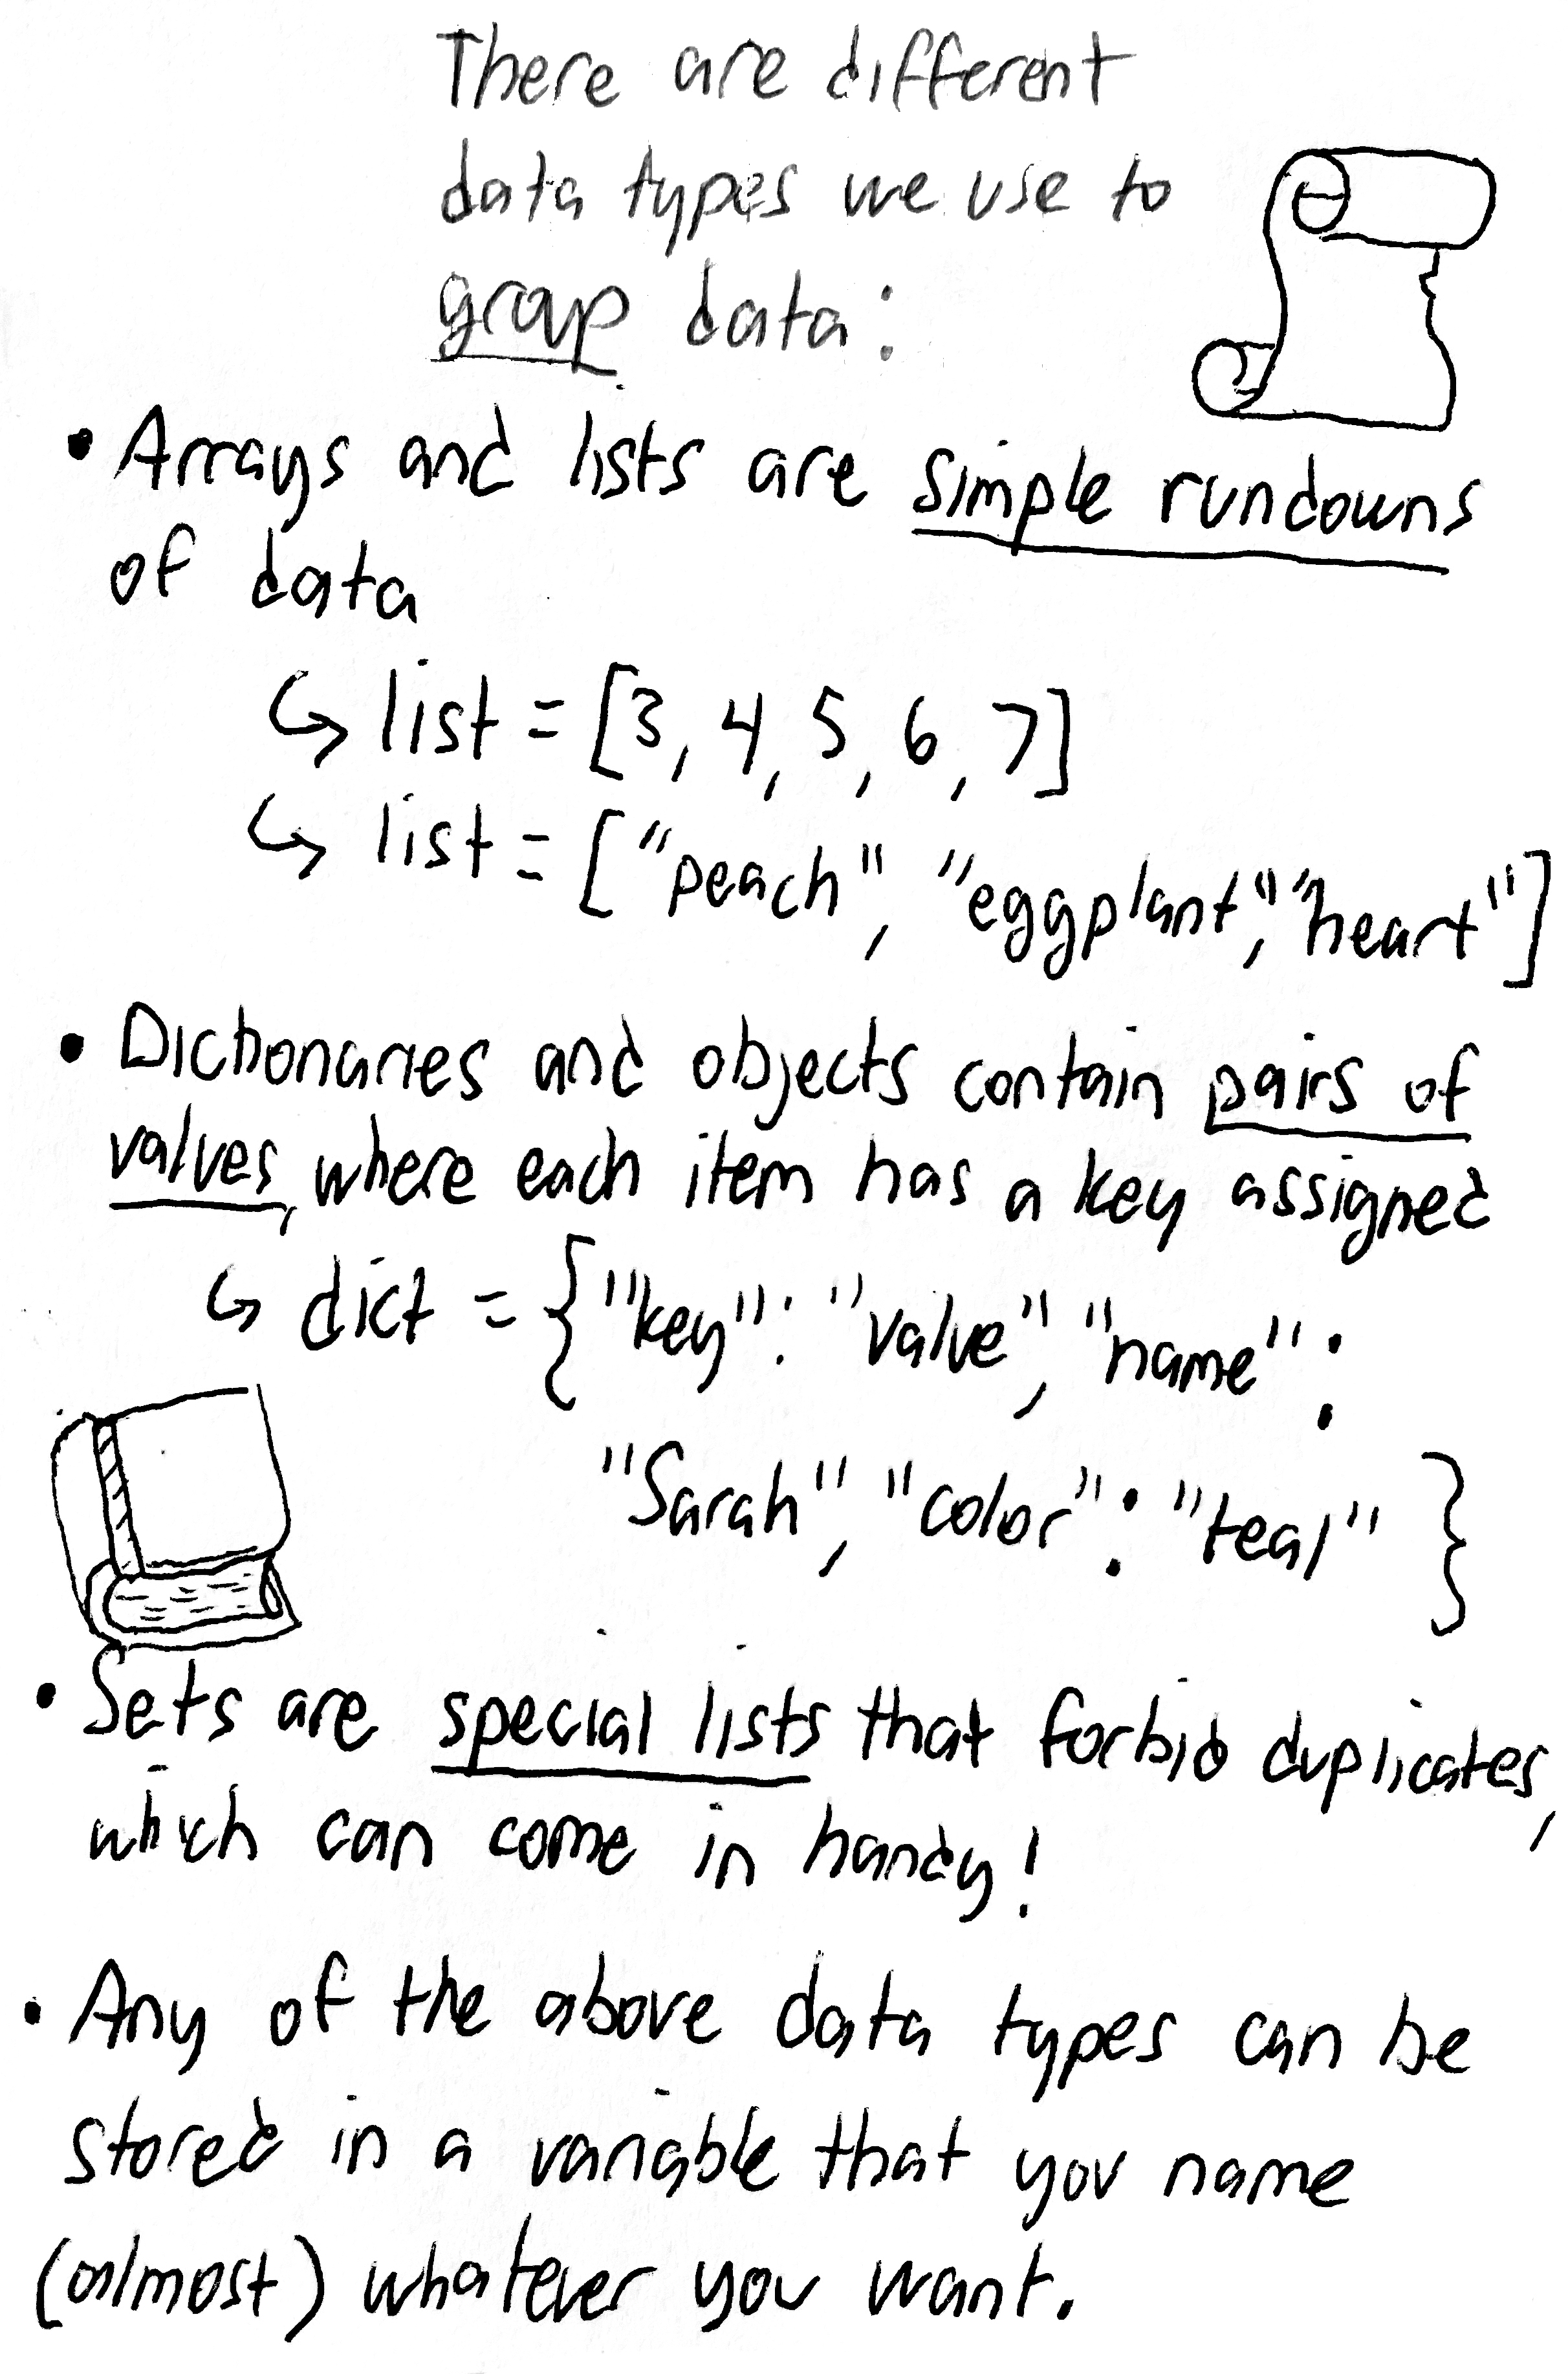 There are different
data types we use to
group data:
• Arrays and lists are simple rundowns
of data
↪ list = [3, 4, 5, 6, 7]
↪ list = ["peach", "eggplant", "heart"]
• Dictionaries and objects contain pairs of
values, where each item has a key assigned
↪ dict = {"key": "value", "name":
"Sarah", "color": "teal" }
• Sets are special lists that forbid duplicates,
which can come in handy!
• Any of the above data types can be
stored in a variable that you name
(almost) whatever you want.